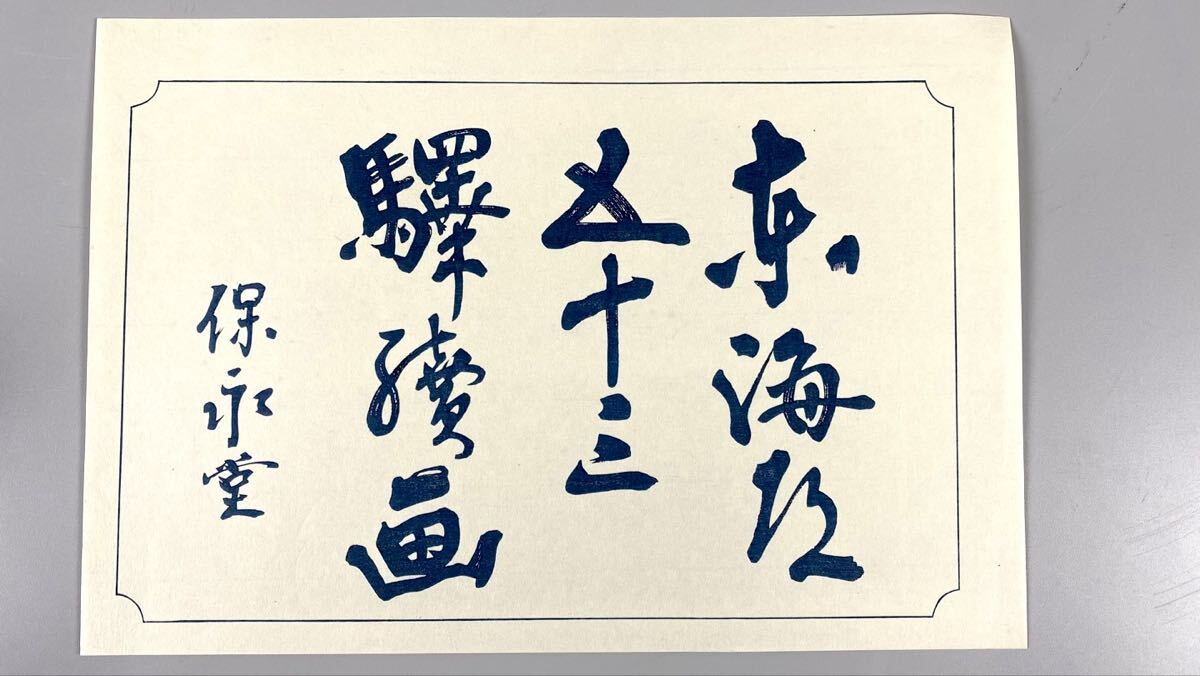 東海道
五十三
驛續画
保永堂